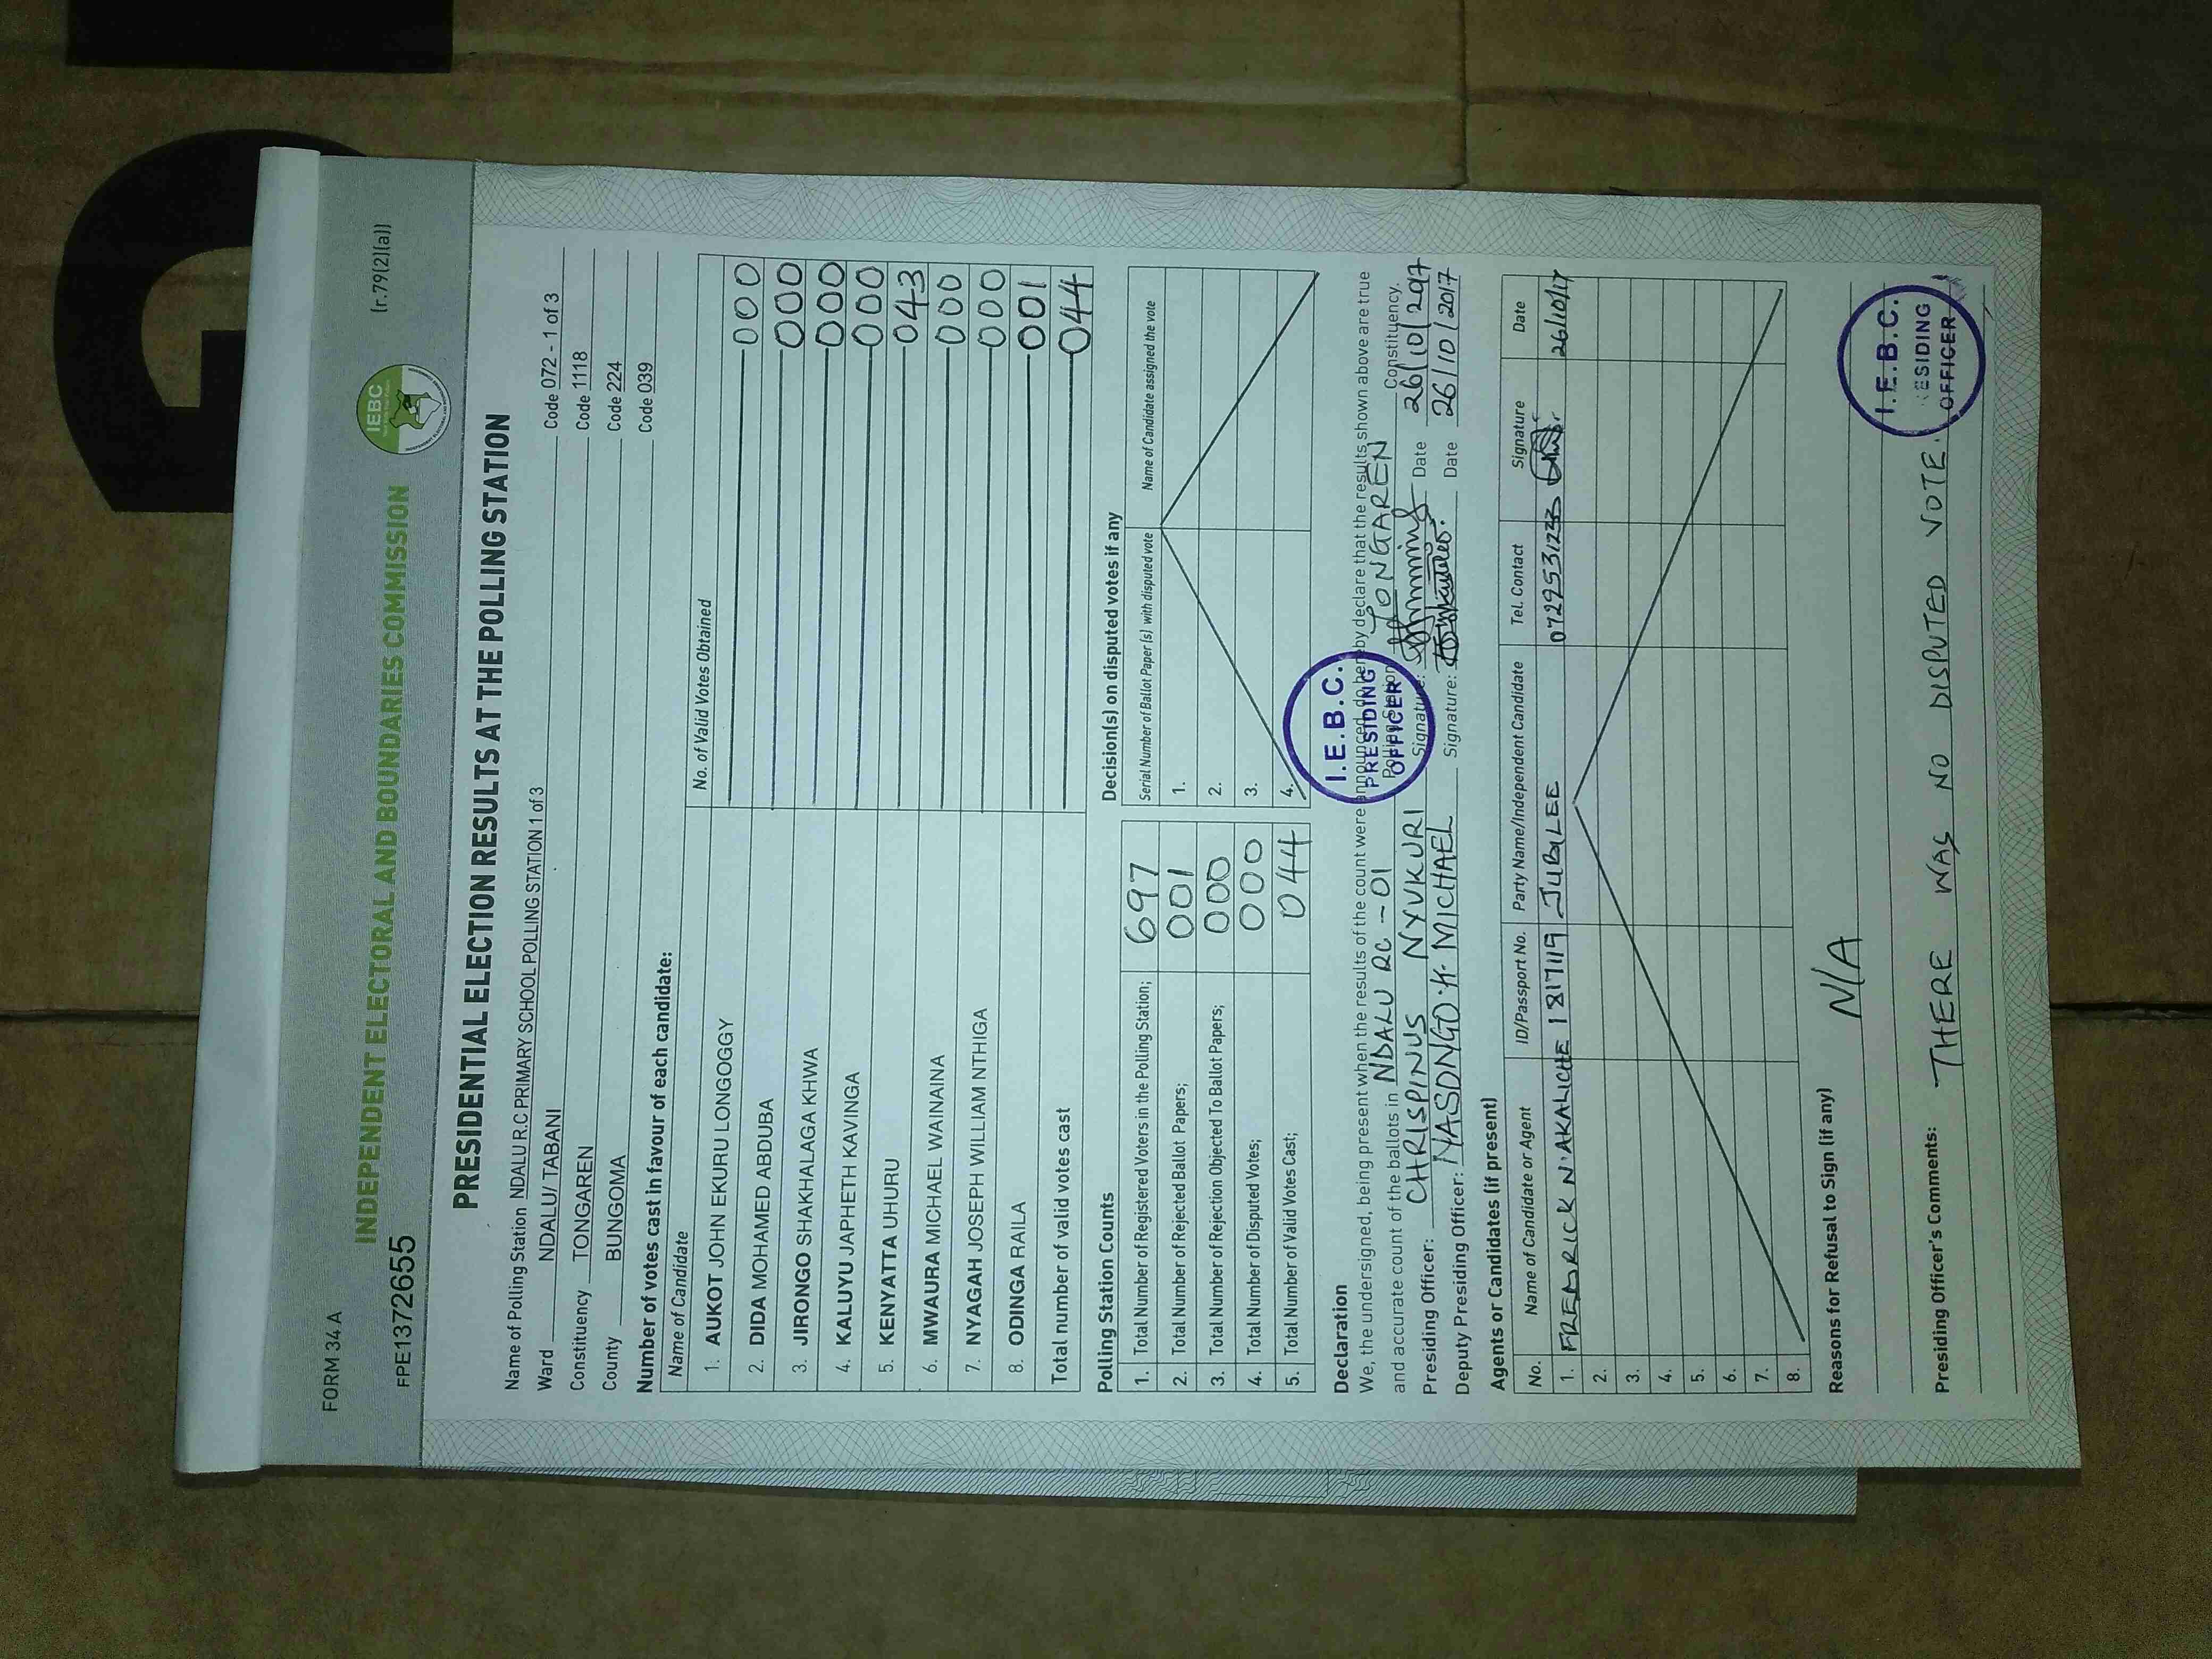 FORM 34 A
(r.79(2)(a))
INDEPENDENT ELECTORAL AND BOUNDARIES COMMISSION
IEBC
FPE1372655
PRESIDENTIAL ELECTION RESULTS AT THE POLLING STATION
Name of Polling Station NDALU R.C PRIMARY SCHOOL POLLING STATION 1 of 3 Code 072 - 1 of 3
Ward NDALU/ TABANI Code 1118
Constituency TONGAREN Code 224
County BUNGOMA Code 039
Number of votes cast in favour of each candidate:
Name of Candidate No. of Valid Votes Obtained
1. AUKOT JOHN EKURU LONGOGGY 000
2. DIDA MOHAMED ABDUBA 000
3. JIRONGO SHAKHALAGA KHWA 000
4. KALUYU JAPHETH KAVINGA 000
5. KENYATTA UHURU 043
6. MWAURA MICHAEL WAINAINA 000
7. NYAGAH JOSEPH WILLIAM NTHIGA 000
8. ODINGA RAILA 001
Total number of valid votes cast 044
Polling Station Counts
1. Total Number of Registered Voters in the Polling Station; 697
2. Total Number of Rejected Ballot Papers; 001
3. Total Number of Rejection Objected To Ballot Papers; 000
4. Total Number of Disputed Votes; 000
5. Total Number of Valid Votes Cast; 044
Decision(s) on disputed votes if any
Serial Number of Ballot Paper (s) with disputed vote Name of Candidate assigned the vote
1.
2.
3.
4.
Declaration
We, the undersigned, being present when the results of the count were announced, do hereby declare that the results shown above are true
and accurate count of the ballots in NDALU RC - 01 Polling Station TONGAREN Constituency.
Presiding Officer: CHRISPINUS NYUKURI Signature: Date 26/10/2017
Deputy Presiding Officer: WASONGO. K. MICHAEL Signature: Date 26/10/2017
I.E.B.C.
PRESIDING
OFFICER
Agents or Candidates (if present)
No. Name of Candidate or Agent ID/Passport No. Party Name/Independent Candidate Tel. Contact Signature Date
1. FREDRICK N'AKALICHE 1817119 JUBILEE 26/10/17
2.
3.
4.
5.
6.
7.
8.
Reasons for Refusal to Sign (if any) N/A
Presiding Officer's Comments: THERE WAS NO DISPUTED VOTE.
I.E.B.C.
RESIDING
OFFICER